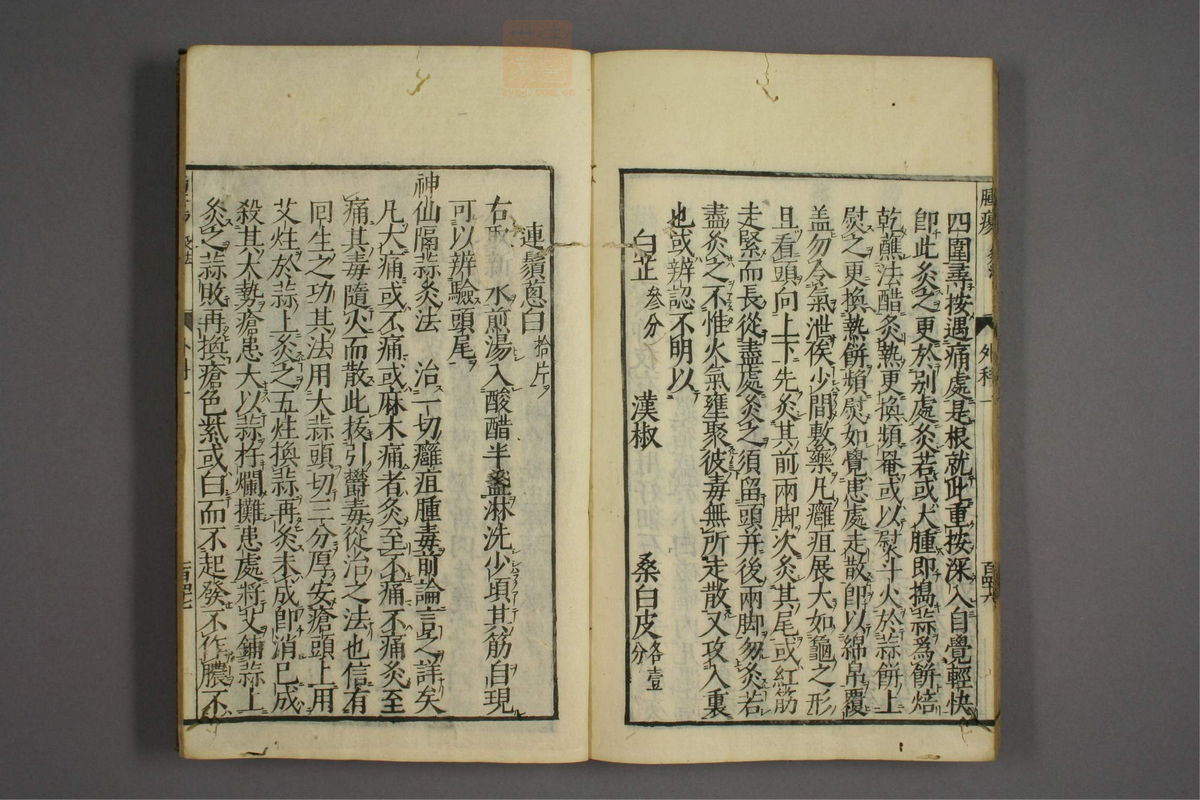 四圍尋按遇痛處是根就此重按深入自覺輕快
即此灸之更於別處灸若或大腫即搗蒜爲餅焙
乾蘸法醋灸熱更換頻罨或以熨斗火於蒜餅上
熨之更換熱餅頻熨如覺患處走散即以綿帛覆
盖勿令氣泄俟少間敷藥凡癰疽展大如龜之形
且看頭向上下先灸其前兩脚次灸其尾或紅筋
走緊而長從盡處灸之須留頭并後兩脚勿灸若
盡灸之不惟火氣壅聚彼毒無所走散又攻入裏
也或辨認不明以
白芷 參分 漢椒 桑白皮 各壹分
連鬚蔥白 拾片
右 水煎湯入酸醋半盞淋洗少頃其筋自現
可以辨驗頭尾
神仙隔蒜灸法 治一切癰疽腫毒前論言之詳矣
凡大痛或不痛或麻木痛者灸至不痛不痛灸至
痛其毒隨火而散此拔引鬱毒從治之法也信有
囘生之功其法用大蒜頭切三分厚安瘡頭上用
艾炷於蒜上灸之五炷換蒜再灸未成即消已成
殺其大勢瘡患大以蒜杵爛攤患處將艾鋪蒜上
灸之蒜敗再換瘡色紫或白而不起發不作膿不
外科一
百四六
百四七